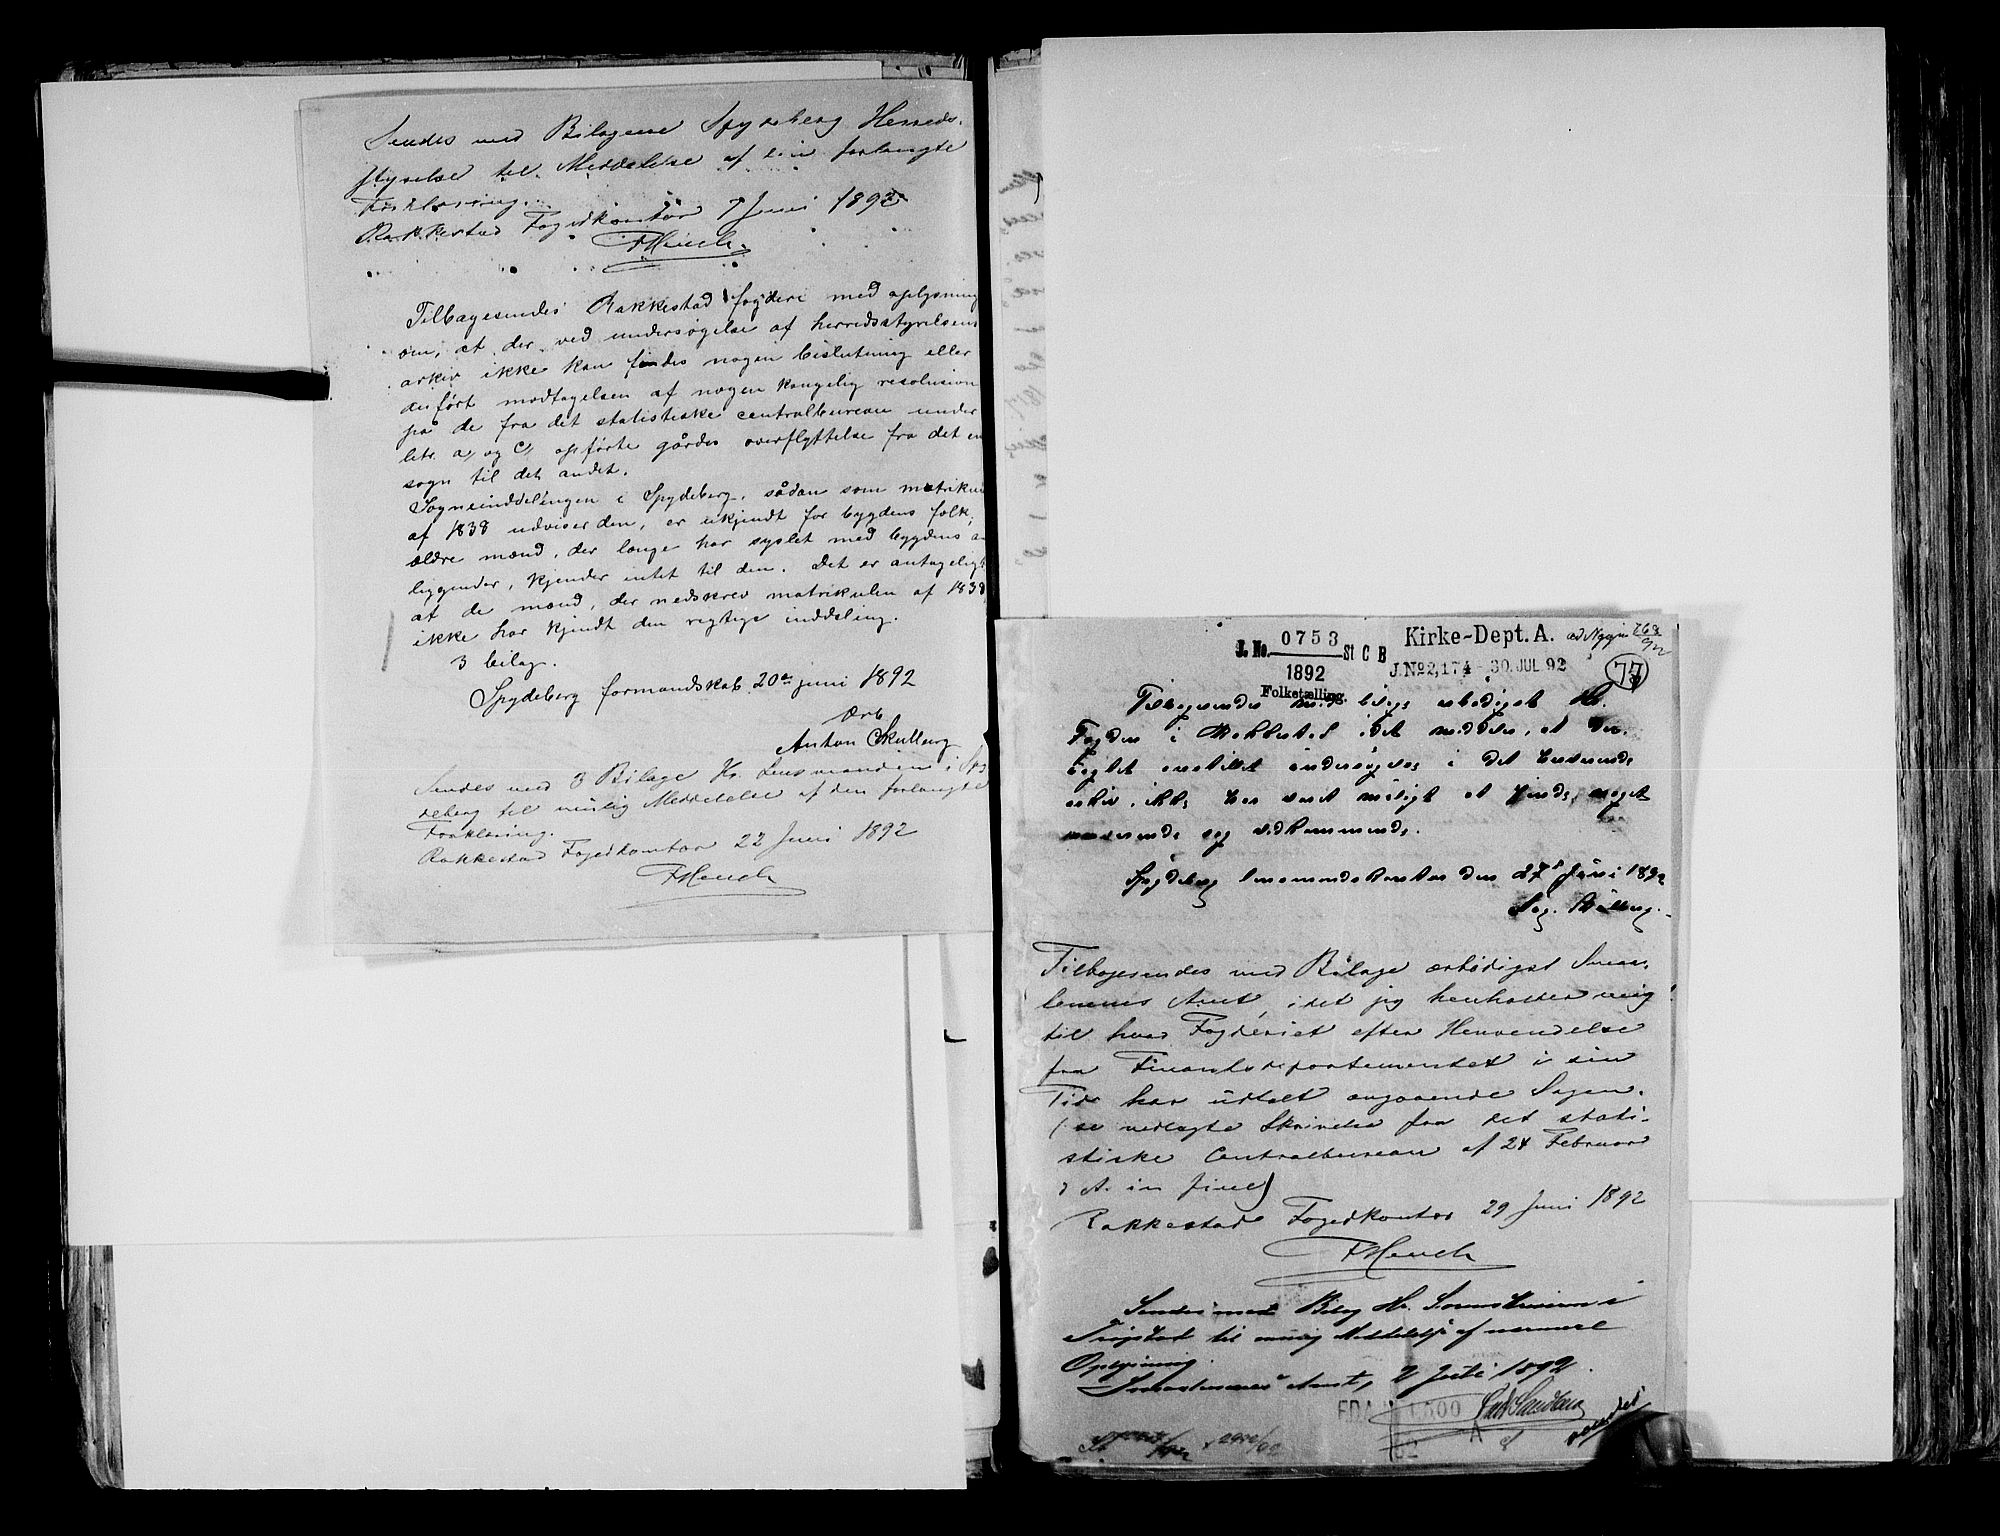 Sendes med Bilagene Spydeberg Herreds-
styrelse til Meddelelse af den forlangte
Forklaring.
Rakkestad Fogedkontor 7 Juni 1892
FHeuch.
Tilbagesendes Rakkestad fogderi med oplysning
om, at der ved undersøgelse af herredsstyrelsens
arkiv ikke kan findes nogen beslutning eller
anført modtagelsen af nogen kongelig resolusion
på de fra det statistiske centralbureau under
litr. a, og c, opførte gårdes overflyttelse fra det en
sogn til det andet.
Sogneinddelingen i Spydeberg, sådan som matrikul
af 1838 udviser den, er ukjendt for bygdens folk;
ældre mænd, der længe har syslet med bygdens an
liggender, kjender intet til den. Det er antageligt
at de mænd, der nedskrev matrikulen af 1838,
ikke har kjendt den rigtige inddeling.
3 bilag.
Spydeberg formandskab 20de juni 1892
Ærb
Anton Skulberg
Sendes med 3 Bilage Hr. Lensmanden i Spy
deberg til villig Meddelelse af den forlangte
Forklaring.
Rakkestad Fogedkontor 22 Juni 1892
FHeuch
J. No. 0753 St C B
1892
Folketælling.
Kirke-Dept. A.
J. No 2,174 - 30. JUL 92
768/92
77
Tilbagesendes med bilage ærbødigst Hr.
Fogden i Rakkestad idet meddeles, at der
Tagtet anstillet undersøgelse i det herværende
arkiv, ikke har været muligt at finde noget
nærværende sag vedkommende.
Spydeberg lensmandskontor den 27de Juni 1892
Tilbagesendes med Bilage ærbødigst Smaa-
lenenes Amt, idet jeg henholder mig
til hvad Fogderiet efter Henvendelse
fra Finantsdepartementet i sin
Tid har udtalt angaaende Sagen.
(se vedlagte Skrivelse fra det stati-
stiske Centralbureau af 24 Februar
d A. in fine)
Rakkestad Fogedkontor 29 Juni 1892
FHeuch
Sendes med Bilag Hr. Sorenskriveren i
Trøgstad til villig Meddelelse af nærmere
Oplysning.
Smaalenenes Amt, 2 Juli 1892.